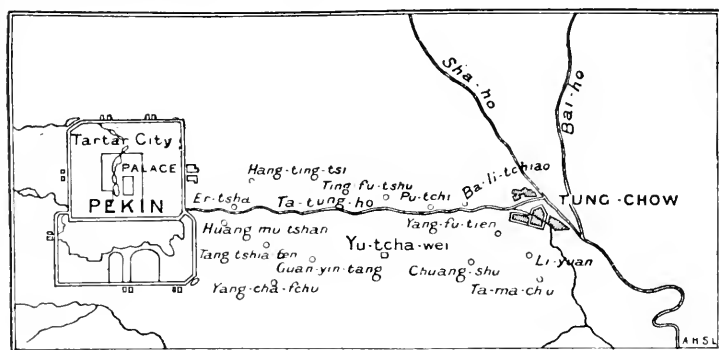 Sha-ho
Bai-ho
Tartar City
PALACE
PEKIN
Hang-ting-tsi
Ting fu-tshu
Er-tsha
Ta-tung-ho
Pu-tchi
Ba-li-tchiao
TUNG-CHOW
Huang mu tshan
Yang-fu-tien
Yu-tcha-wei
Tang tshia fen
Guan-yin-tang
Chuang-shu
Li-yuan
Yang-cha-fchu
Ta-ma-chu
A.H.S.L.